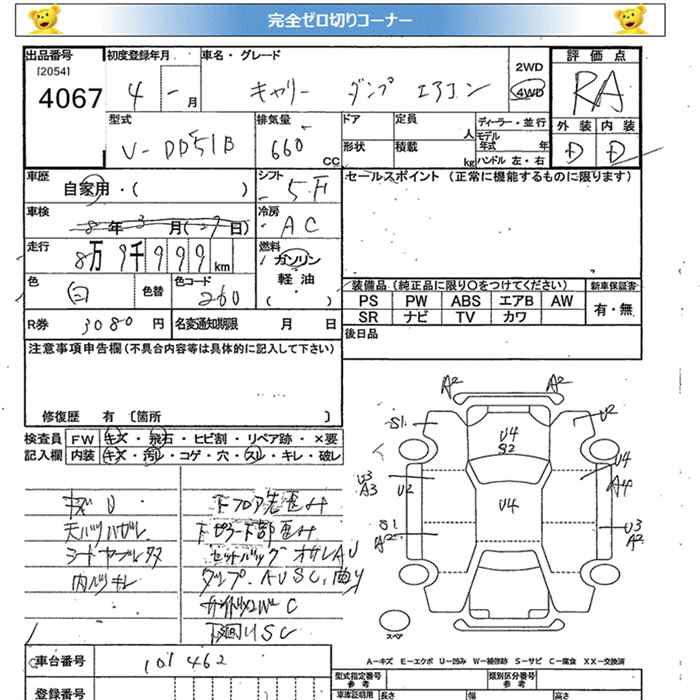 完全ゼロ切りコーナー
出品番号 初度登録年月 車名・グレード 評価点
[2054]
4067 4 - 月 キャリー ダンプ エアコン 2WD 4WD RA
型式 排気量 ドア 定員 人 ディーラー・並行 外装 内装
V-DD51B 660 CC 形状 積載 kg モデル年式 年 ハンドル 左・右 D D
車歴 シフト セールスポイント (正常に機能するものに限ります)
自家用・( ) 5F
車検 冷房
8年3月(27日) AC
走行 燃料
8万9千999km ガソリン
軽油
( )
色 色替 色コード
白 260
装備品 (純正品に限り○をつけてください) 新車保証書
PS PW ABS エアB AW 有・無
SR ナビ TV カワ
R券 3080 円 名変通知期限 月 日
後日品
注意事項申告欄 (不具合内容等は具体的に記入して下さい)
修復歴 有 〔箇所 〕
検査員 FW キズ・飛石・ヒビ割・リペア跡・×要
記入欄 内装 キズ・汚れ・コゲ・穴・スレ・キレ・破レ
A2 A2
S1 U2
U4
S2
U3 U4
A3 U2 U4 A4
S1 U3
A2 A2
スペア
下フロア先歪み
天バリハガレ
シートヤブレ
内バリキレ
下回りSC
A=キズ E=エクボ U=凹み W=補修跡 S=サビ C=腐食 XX=交換済
車台番号 101462
登録番号
型式指定番号 参考 類別区分番号 参考
車庫証明用 長さ 幅 高さ